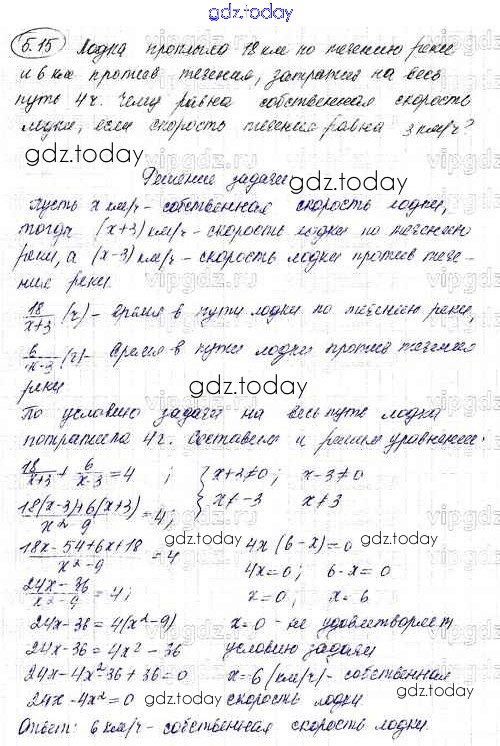 gdz.today
5.15 Лодка проплыла 18 км по течению реки
и 6 км против течения, затратив на весь
путь 4 ч. Чему равна собственная скорость
лодки, если скорость течения равна 3 км/ч?
gdz.today gdz.today
Решение задачи
Пусть x км/ч - собственная скорость лодки,
тогда (x+3) км/ч - скорость лодки по течению
реки, а (x-3) км/ч - скорость лодки против тече-
ния реки.
18/(x+3) (ч) - время в пути лодки по течению реки,
6/(x-3) (ч) - время в пути лодки против течения
реки
gdz.today
По условию задачи на весь путь лодка
потратила 4 ч. Составим и решим уравнение:
18/(x+3) + 6/(x-3) = 4 ; { x+3≠0; x-3≠0
(18(x-3)+6(x+3))/(x²-9) = 4; x≠-3 x≠3
(18x-54+6x+18)/(x²-9) = 4 4x(6-x)=0
gdz.today gdz.today
4x=0; 6-x=0
(24x-36)/(x²-9) = 4; x=0; x=6
24x-36=4(x²-9) x=0 - не удовлетворяет
24x-36=4x²-36 условию задачи
24x-4x²-36+36=0 x=6 (км/ч) - собственная
24x-4x²=0 скорость лодки.
Ответ: 6 км/ч - собственная скорость лодки.
gdz.today